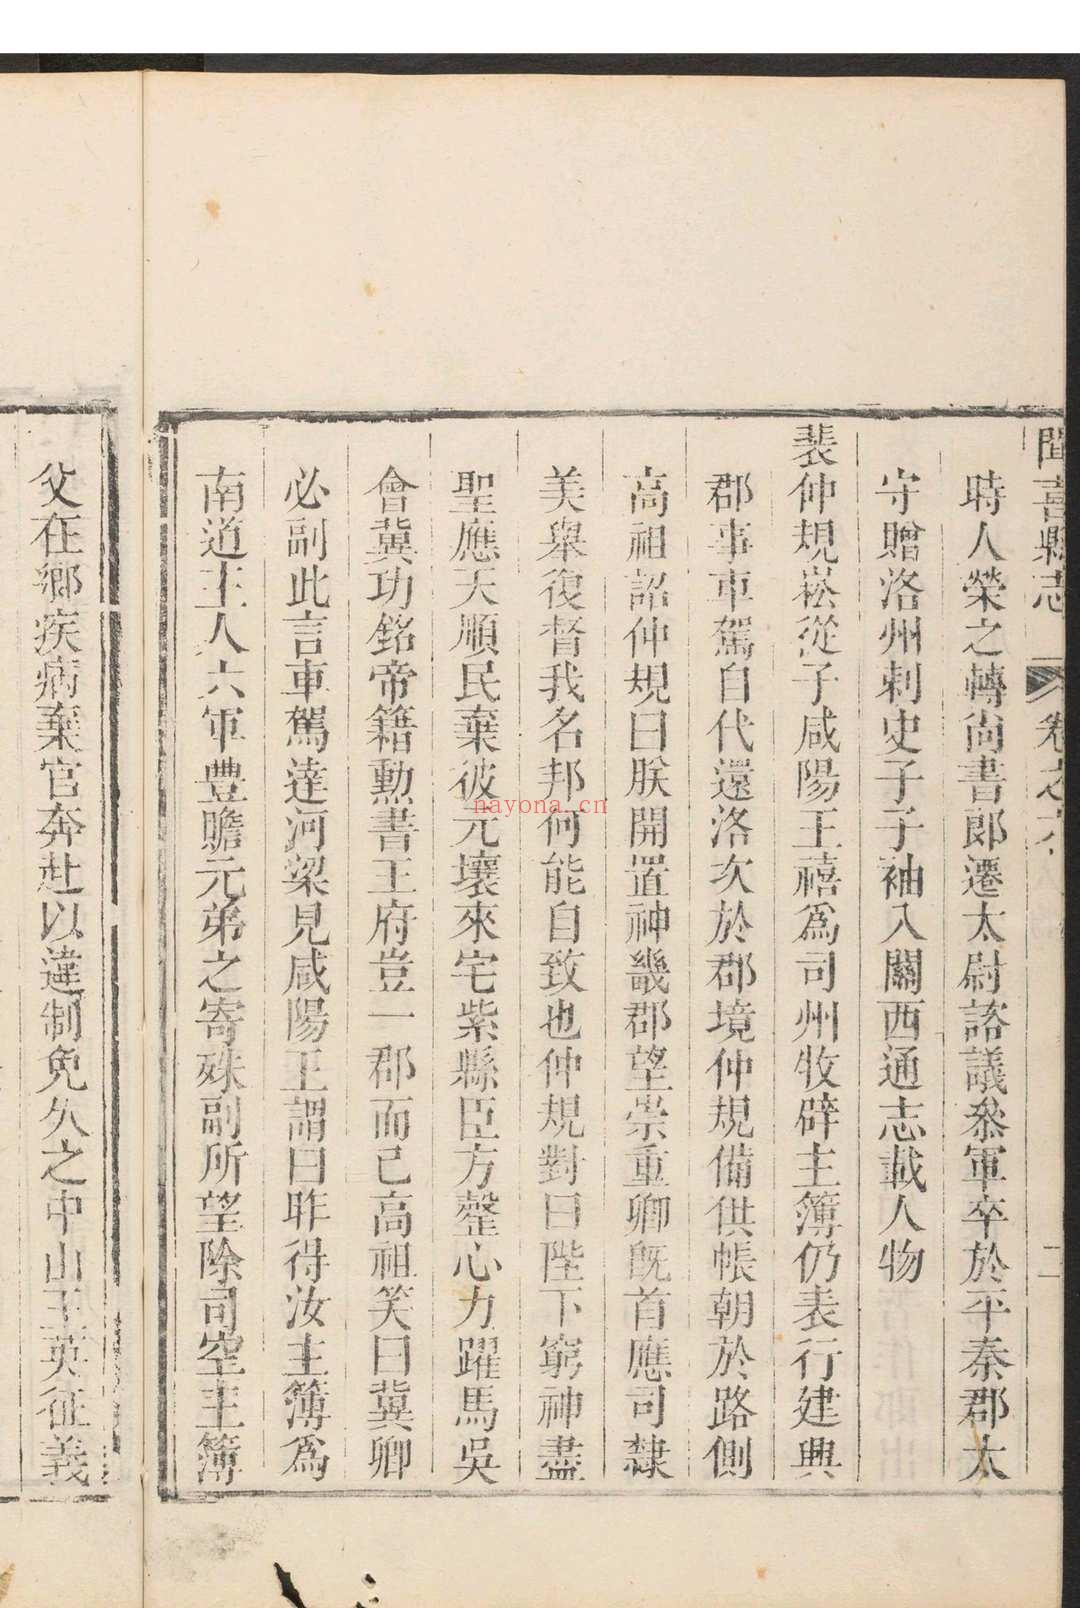 聞喜縣志 卷之六 二
時人榮之轉尚書郎遷太尉諮議叅軍卒於平秦郡太
守贈洛州刺史子子袖入關西通志載人物
裴仲規崧從子咸陽王禧爲司州牧辟主簿仍表行建興
郡事車駕自代還洛次於郡境仲規備供帳朝於路側
高祖詔仲規曰朕開置神畿郡望崇重卿旣首應司隸
美舉復督我名邦何能自致也仲規對曰陛下窮神盡
聖應天順民棄彼元壤來宅紫縣臣方罄心力躍馬吳
會冀功銘帝籍勳書王府豈一郡而已高祖笑曰冀卿
必副此言車駕達河梁見咸陽王謂曰昨得汝主簿爲
南道主人六軍豐贍元弟之寄殊副所望除司空主簿
父在鄉疾病棄官奔赴以違制免久之中山王英征義
nayona.cn